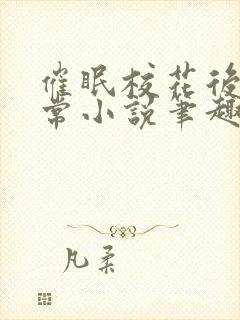 催眠校花後
常小說筆趣
凡柔